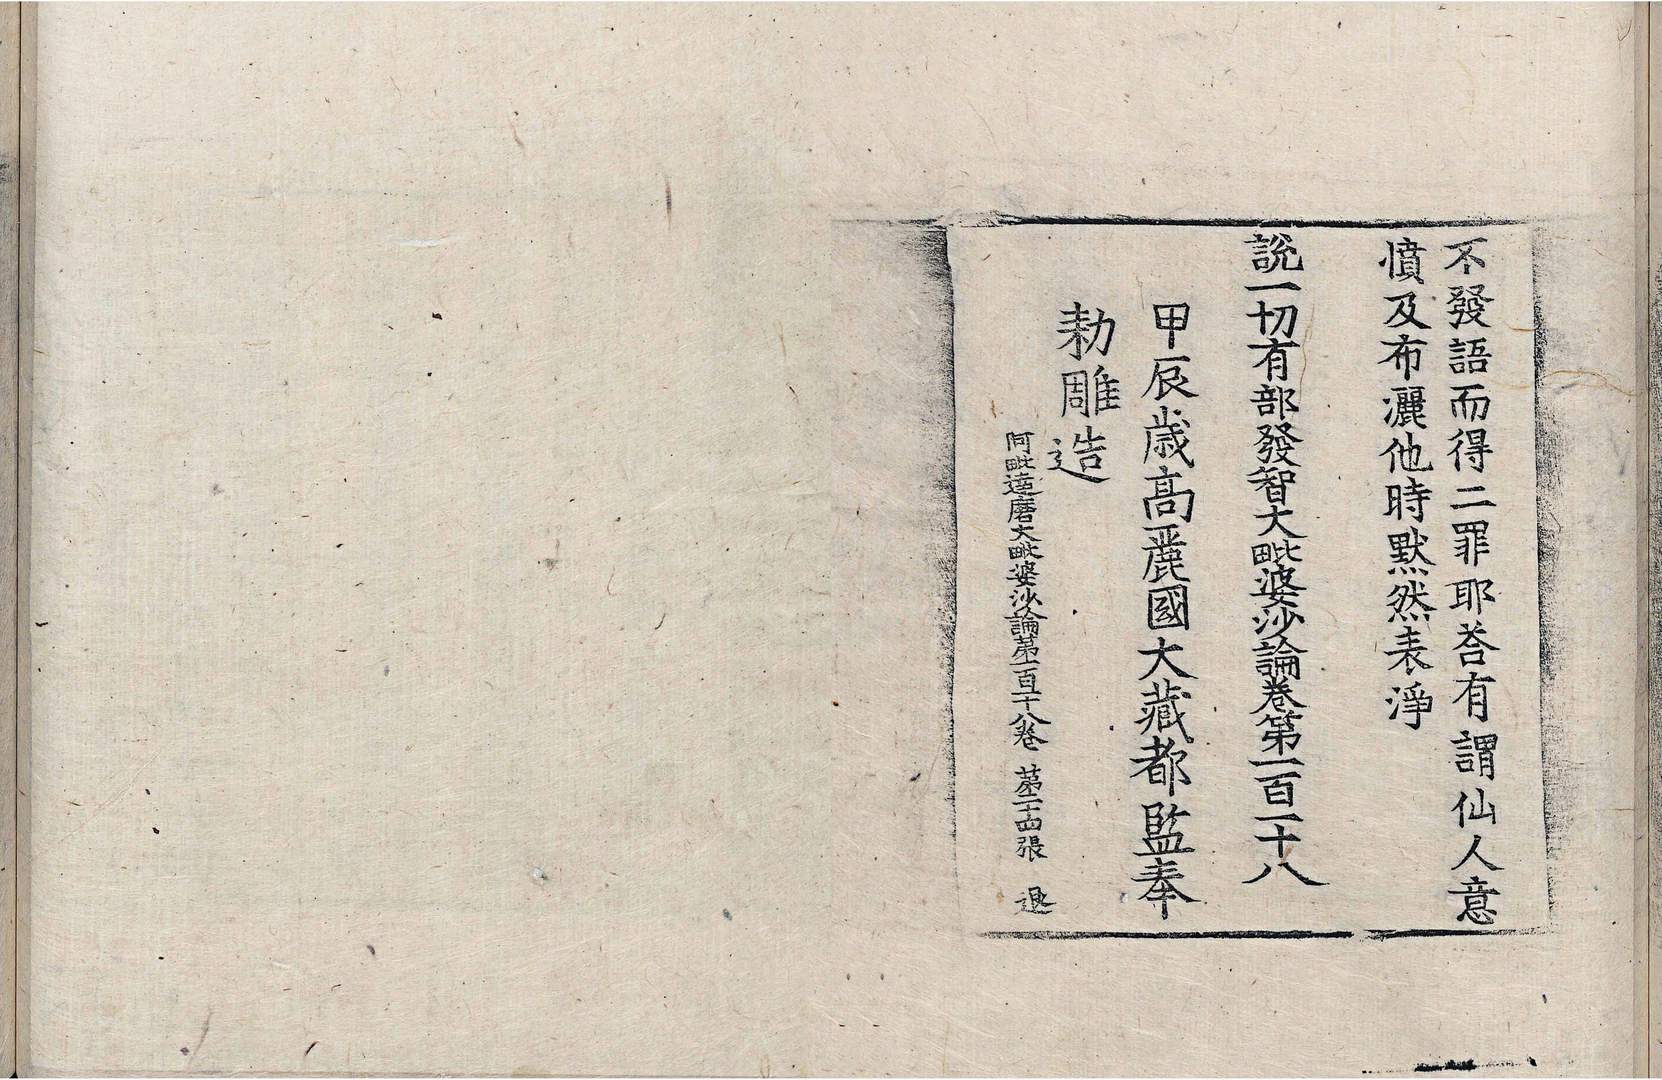 不發語而得二罪耶荅有謂仙人意
憤及布灑他時默然表淨
說一切有部發智大毗婆沙論卷第一百一十八
甲辰歲高麗國大藏都監奉
勑雕造
阿毗達磨大毗婆沙論苐一百一十八卷 苐二十四張 退